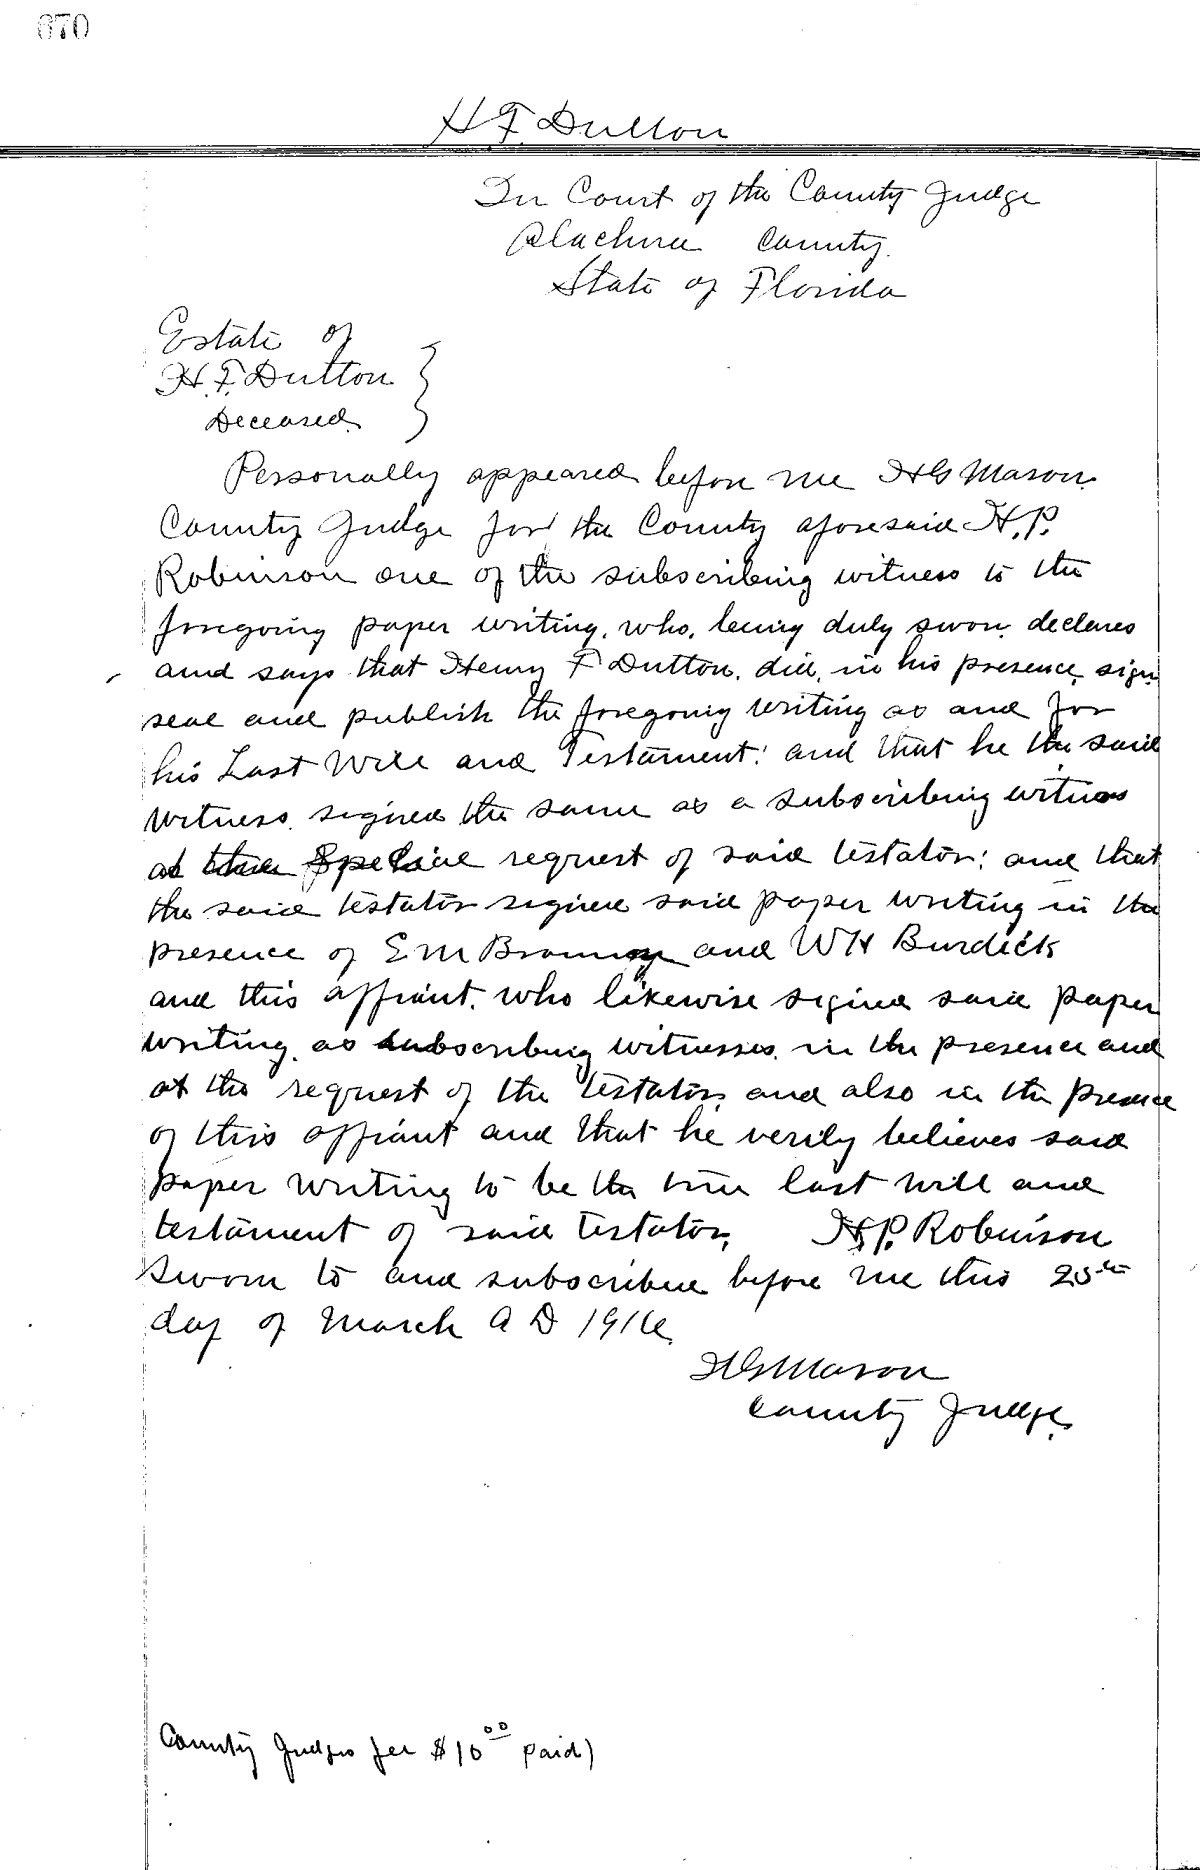 670
H F Dutton
In Court of the County Judge
Alachua County.
State of Florida
Estate of
H. F. Dutton
Deceased.
Personally appeared before me H G Mason
County Judge for the County aforesaid H. P.
Robinson one of the subscribing witness to the
foregoing paper writing, who, being duly sworn, declares
and says that Henry F Dutton, did, in his presence, sign
seal and publish the foregoing writing as and for
his Last Will and Testament: and that he the said
witness, signed the same as a subscribing witness
at the special request of said testator; and that
the said testator signed said paper writing in the
presence of E M and W H Burdick
and this affiant, who likewise signed said paper
writing, as subscribing witnesses, in the presence and
at the request of the testator, and also in the presence
of this affiant and that he verily believes said
paper writing to be the true last will and
testament of said testator. H. P. Robinson
Sworn to and subscribed before me this 25th
day of March A D 1916.
H G Mason
County Judge.
County Judges fee $10 00 paid)